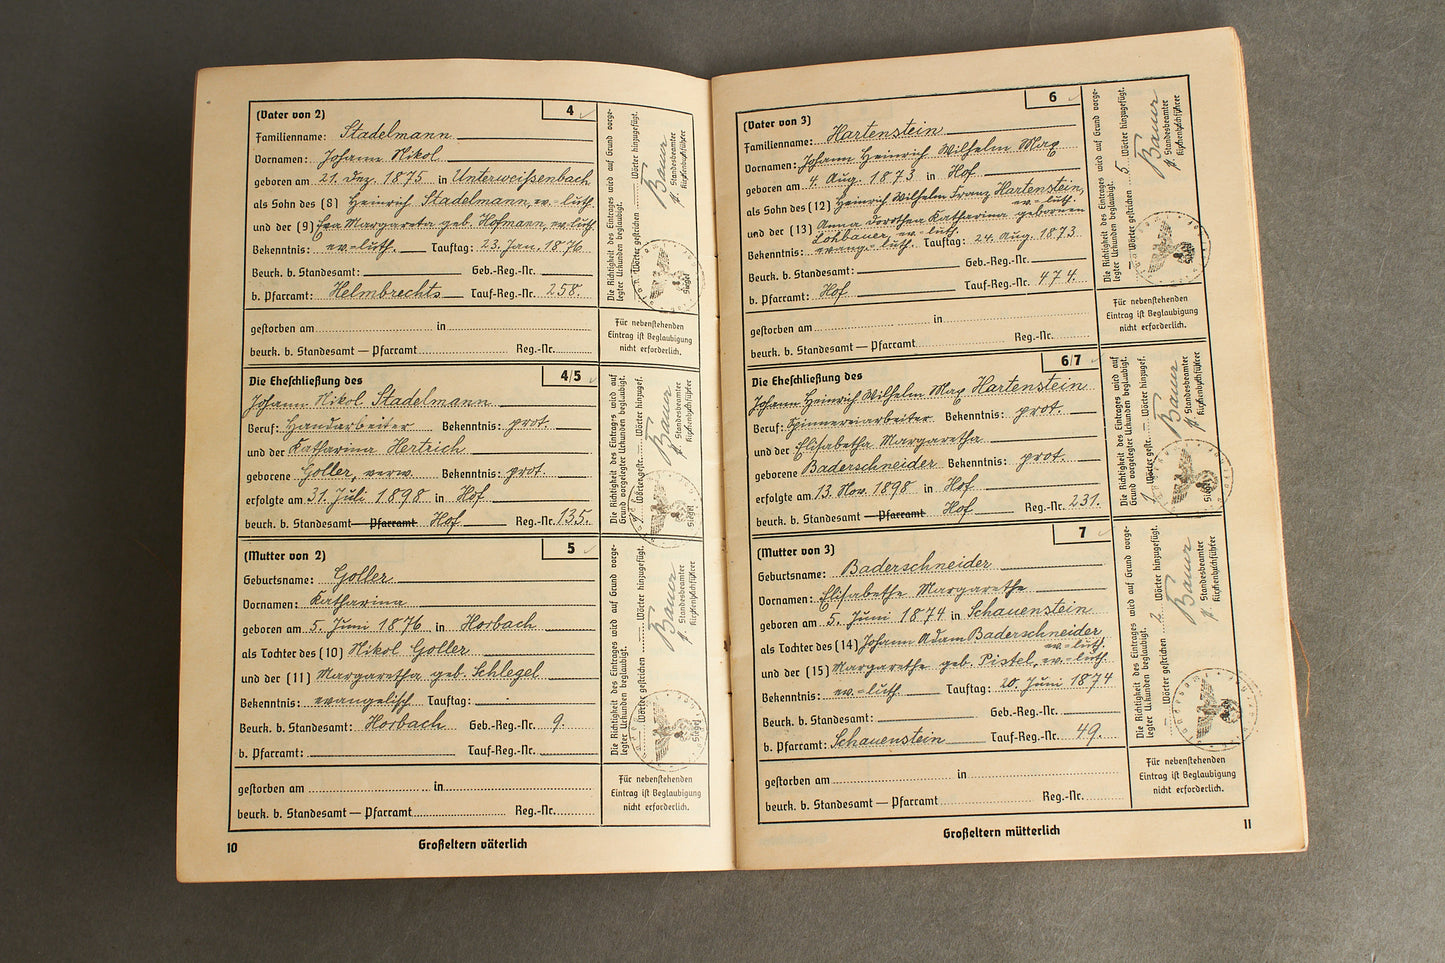 (Vater von 2) 4
Familienname: Stadelmann
Vornamen: Johann Nikol
geboren am 21. Dez. 1875 in Unterweißenbach
als Sohn des (8) Heinrich Stadelmann, ev.-luth.
und der (9) Eva Margareta geb. Hofmann, ev.-luth.
Bekenntnis: ev.-luth. Tauftag: 23. Jan. 1876
Beurk. b. Standesamt: Geb.-Reg.-Nr.
b. Pfarramt: Helmbrechts Tauf-Reg.-Nr. 258.
gestorben am in
beurk. b. Standesamt — Pfarramt Reg.-Nr.
Die Richtigkeit des Eintrages wird auf Grund vorge-
legter Urkunden beglaubigt.
Wörter gestrichen Wörter hinzugefügt.
Bauer
Standesbeamter
Kirchenbuchführer
Siegel
Für nebenstehenden
Eintrag ist Beglaubigung
nicht erforderlich.
Die Eheschließung des 4/5
Johann Nikol Stadelmann
Beruf: Handarbeiter Bekenntnis: prot.
und der Katharina Hertrich
geborene Goller, verw. Bekenntnis: prot.
erfolgte am 31. Juli 1898 in Hof.
beurk. b. Standesamt — Pfarramt Hof. Reg.-Nr. 135.
Die Richtigkeit des Eintrags wird auf
Grund vorgelegter Urkunden beglaubigt.
Wörter gestr. Wörter hinzugef.
Bauer
Standesbeamter
Kirchenbuchführer
Siegel
(Mutter von 2) 5
Geburtsname: Goller
Vornamen: Katharina
geboren am 5. Juni 1876 in Horbach
als Tochter des (10) Nikol Goller
und der (11) Margaretha geb. Schlegel
Bekenntnis: evangelisch Tauftag:
Beurk. b. Standesamt: Horbach Geb.-Reg.-Nr. 9.
b. Pfarramt: Tauf-Reg.-Nr.
gestorben am in
beurk. b. Standesamt — Pfarramt Reg.-Nr.
Die Richtigkeit des Eintrages wird auf Grund vorge-
legter Urkunden beglaubigt.
Wörter gestrichen Wörter hinzugefügt.
Bauer
Standesbeamter
Kirchenbuchführer
Siegel
Für nebenstehenden
Eintrag ist Beglaubigung
nicht erforderlich.
10 Großeltern väterlich
(Vater von 3) 6
Familienname: Hartenstein
Vornamen: Johann Heinrich Wilhelm Max
geboren am 4. Aug. 1873 in Hof
als Sohn des (12) Heinrich Wilhelm Franz Hartenstein, ev.-luth.
und der (13) Anna Dorothea Katharina geborenen
Lohbauer, ev.-luth.
Bekenntnis: evang.-luth. Tauftag: 24. Aug. 1873
Beurk. b. Standesamt: Geb.-Reg.-Nr.
b. Pfarramt: Hof. Tauf-Reg.-Nr. 474.
gestorben am in
beurk. b. Standesamt — Pfarramt Reg.-Nr.
Die Richtigkeit des Eintrages wird auf Grund vorge-
legter Urkunden beglaubigt.
— Wörter gestrichen 5. Wörter hinzugefügt.
Bauer
Standesbeamter
Kirchenbuchführer
Für nebenstehenden
Eintrag ist Beglaubigung
nicht erforderlich.
Die Eheschließung des 6/7
Johann Heinrich Wilhelm Max Hartenstein
Beruf: Spinnereiarbeiter Bekenntnis: prot.
und der Elisabetha Margaretha
geborene Baderschneider Bekenntnis: prot.
erfolgte am 13. Nov. 1898 in Hof.
beurk. b. Standesamt — Pfarramt Hof Reg.-Nr. 231.
Die Richtigkeit des Eintrages wird auf
Grund vorgelegter Urkunden beglaubigt.
1 Wörter gestr. — Wörter hinzugef.
Bauer
Standesbeamter
Kirchenbuchführer
Siegel
(Mutter von 3) 7
Geburtsname: Baderschneider
Vornamen: Elisabethe Margarethe
geboren am 5. Juni 1874 in Schauenstein
als Tochter des (14) Johann Adam Baderschneider ev.-luth.
und der (15) Margarethe geb. Pistel, ev.-luth.
Bekenntnis: ev.-luth Tauftag: 20. Juni 1874
Beurk. b. Standesamt: Geb.-Reg.-Nr.
b. Pfarramt: Schauenstein Tauf-Reg.-Nr. 49.
gestorben am in
beurk. b. Standesamt — Pfarramt Reg.-Nr.
Die Richtigkeit des Eintrages wird auf Grund vorge-
legter Urkunden beglaubigt.
— Wörter gestrichen 2. Wörter hinzugefügt.
Bauer
Standesbeamter
Kirchenbuchführer
Für nebenstehenden
Eintrag ist Beglaubigung
nicht erforderlich.
Großeltern mütterlich 11